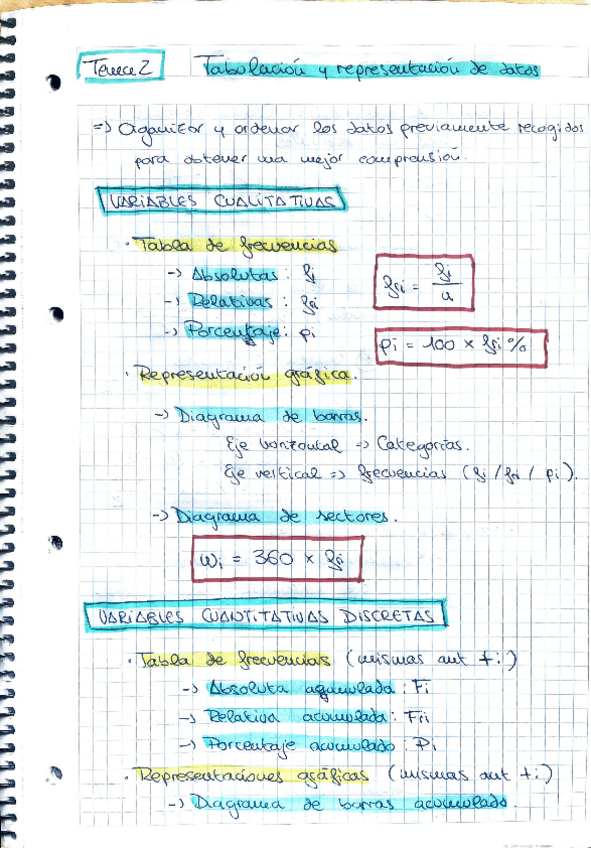 Tema 2 Tabulación y representación de datos
=> Organizar y ordenar los datos previamente recogidos
para obtener una mejor comprensión.
VARIABLES CUALITATIVAS
· Tabla de frecuencias
-> Absolutas: fi
-> Relativas: fri
-> Porcentaje: pi
fri = fi / n
pi = 100 x fri %
· Representación gráfica.
-> Diagrama de barras.
Eje horizontal => Categorías.
Eje vertical => frecuencias (fi / fri / pi).
-> Diagrama de sectores.
wi = 360 x fri
VARIABLES CUANTITATIVAS DISCRETAS
· Tabla de frecuencias (mismas ant +:)
-> Absoluta acumulada: Fi
-> Relativa acumulada: Fri
-> Porcentaje acumulado: Pi
· Representaciones gráficas (mismas ant +:)
-> Diagrama de barras acumulado.